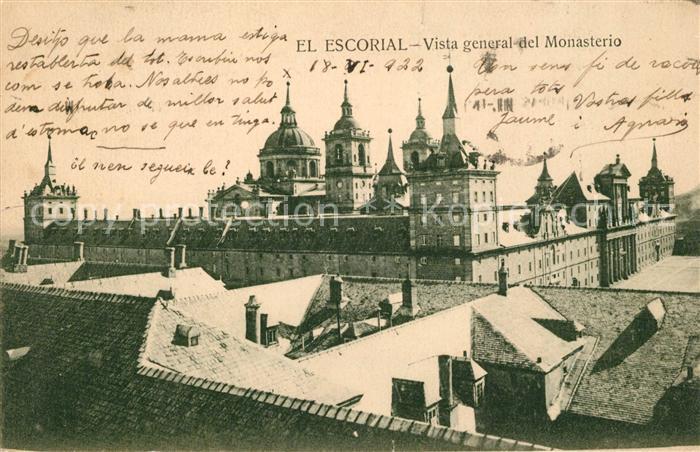 EL ESCORIAL – Vista general del Monasterio
Desitjo que la mama estiga
restablerta del tot. Escribiu nos
com se troba. Nosaltres no po
dem disfrutar de millor salut
d'estomac no se que en tinga.
ól nen segueix be?
18-VI-922
un sens fi de
pera tots
Vostres fills
Jaume i
copyright protection